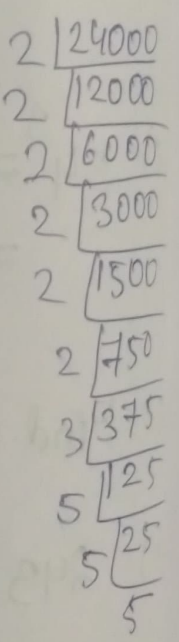 2 24000
2 12000
2 6000
2 3000
2 1500
2 750
3 375
5 125
5 25
5